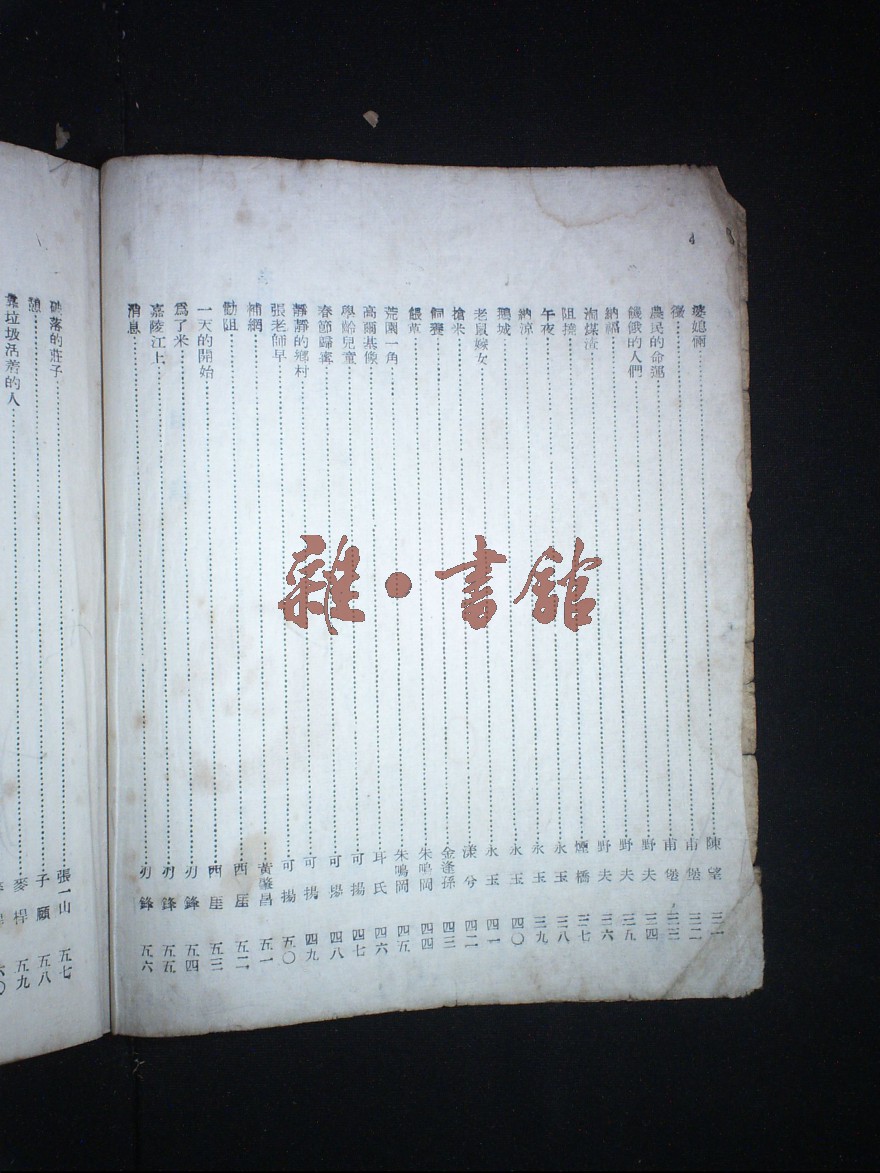 4
婆媳倆 陳望 三一
甫堡 三二
農民的命運 甫堡 三三
饑餓的人們 野夫 三四
納福 野夫 三五
淘煤渣 野夫 三六
阻撓 煙橋 三七
午夜 永玉 三八
納涼 永玉 三九
鵝城 永玉 四〇
老鼠嫁女 永玉 四一
搶米 四二
飼養 金逢孫 四三
餵草 朱鳴岡 四四
荒園一角 朱鳴岡 四五
高爾基像 耳氏 四六
學齡兒童 可揚 四七
春節歸寧 可揚 四八
靜靜的鄉村 可揚 四九
張老師早 可揚 五〇
補網 黃肇昌 五一
勸阻 西厓 五二
一天的開始 西厓 五三
爲了米 刃鋒 五四
嘉陵江上 刃鋒 五五
消息 刃鋒 五六
破落的莊子 張一山 五七
憩 子願 五八
靠垃圾活着的人 麥桿 五九
六〇
雜·書館